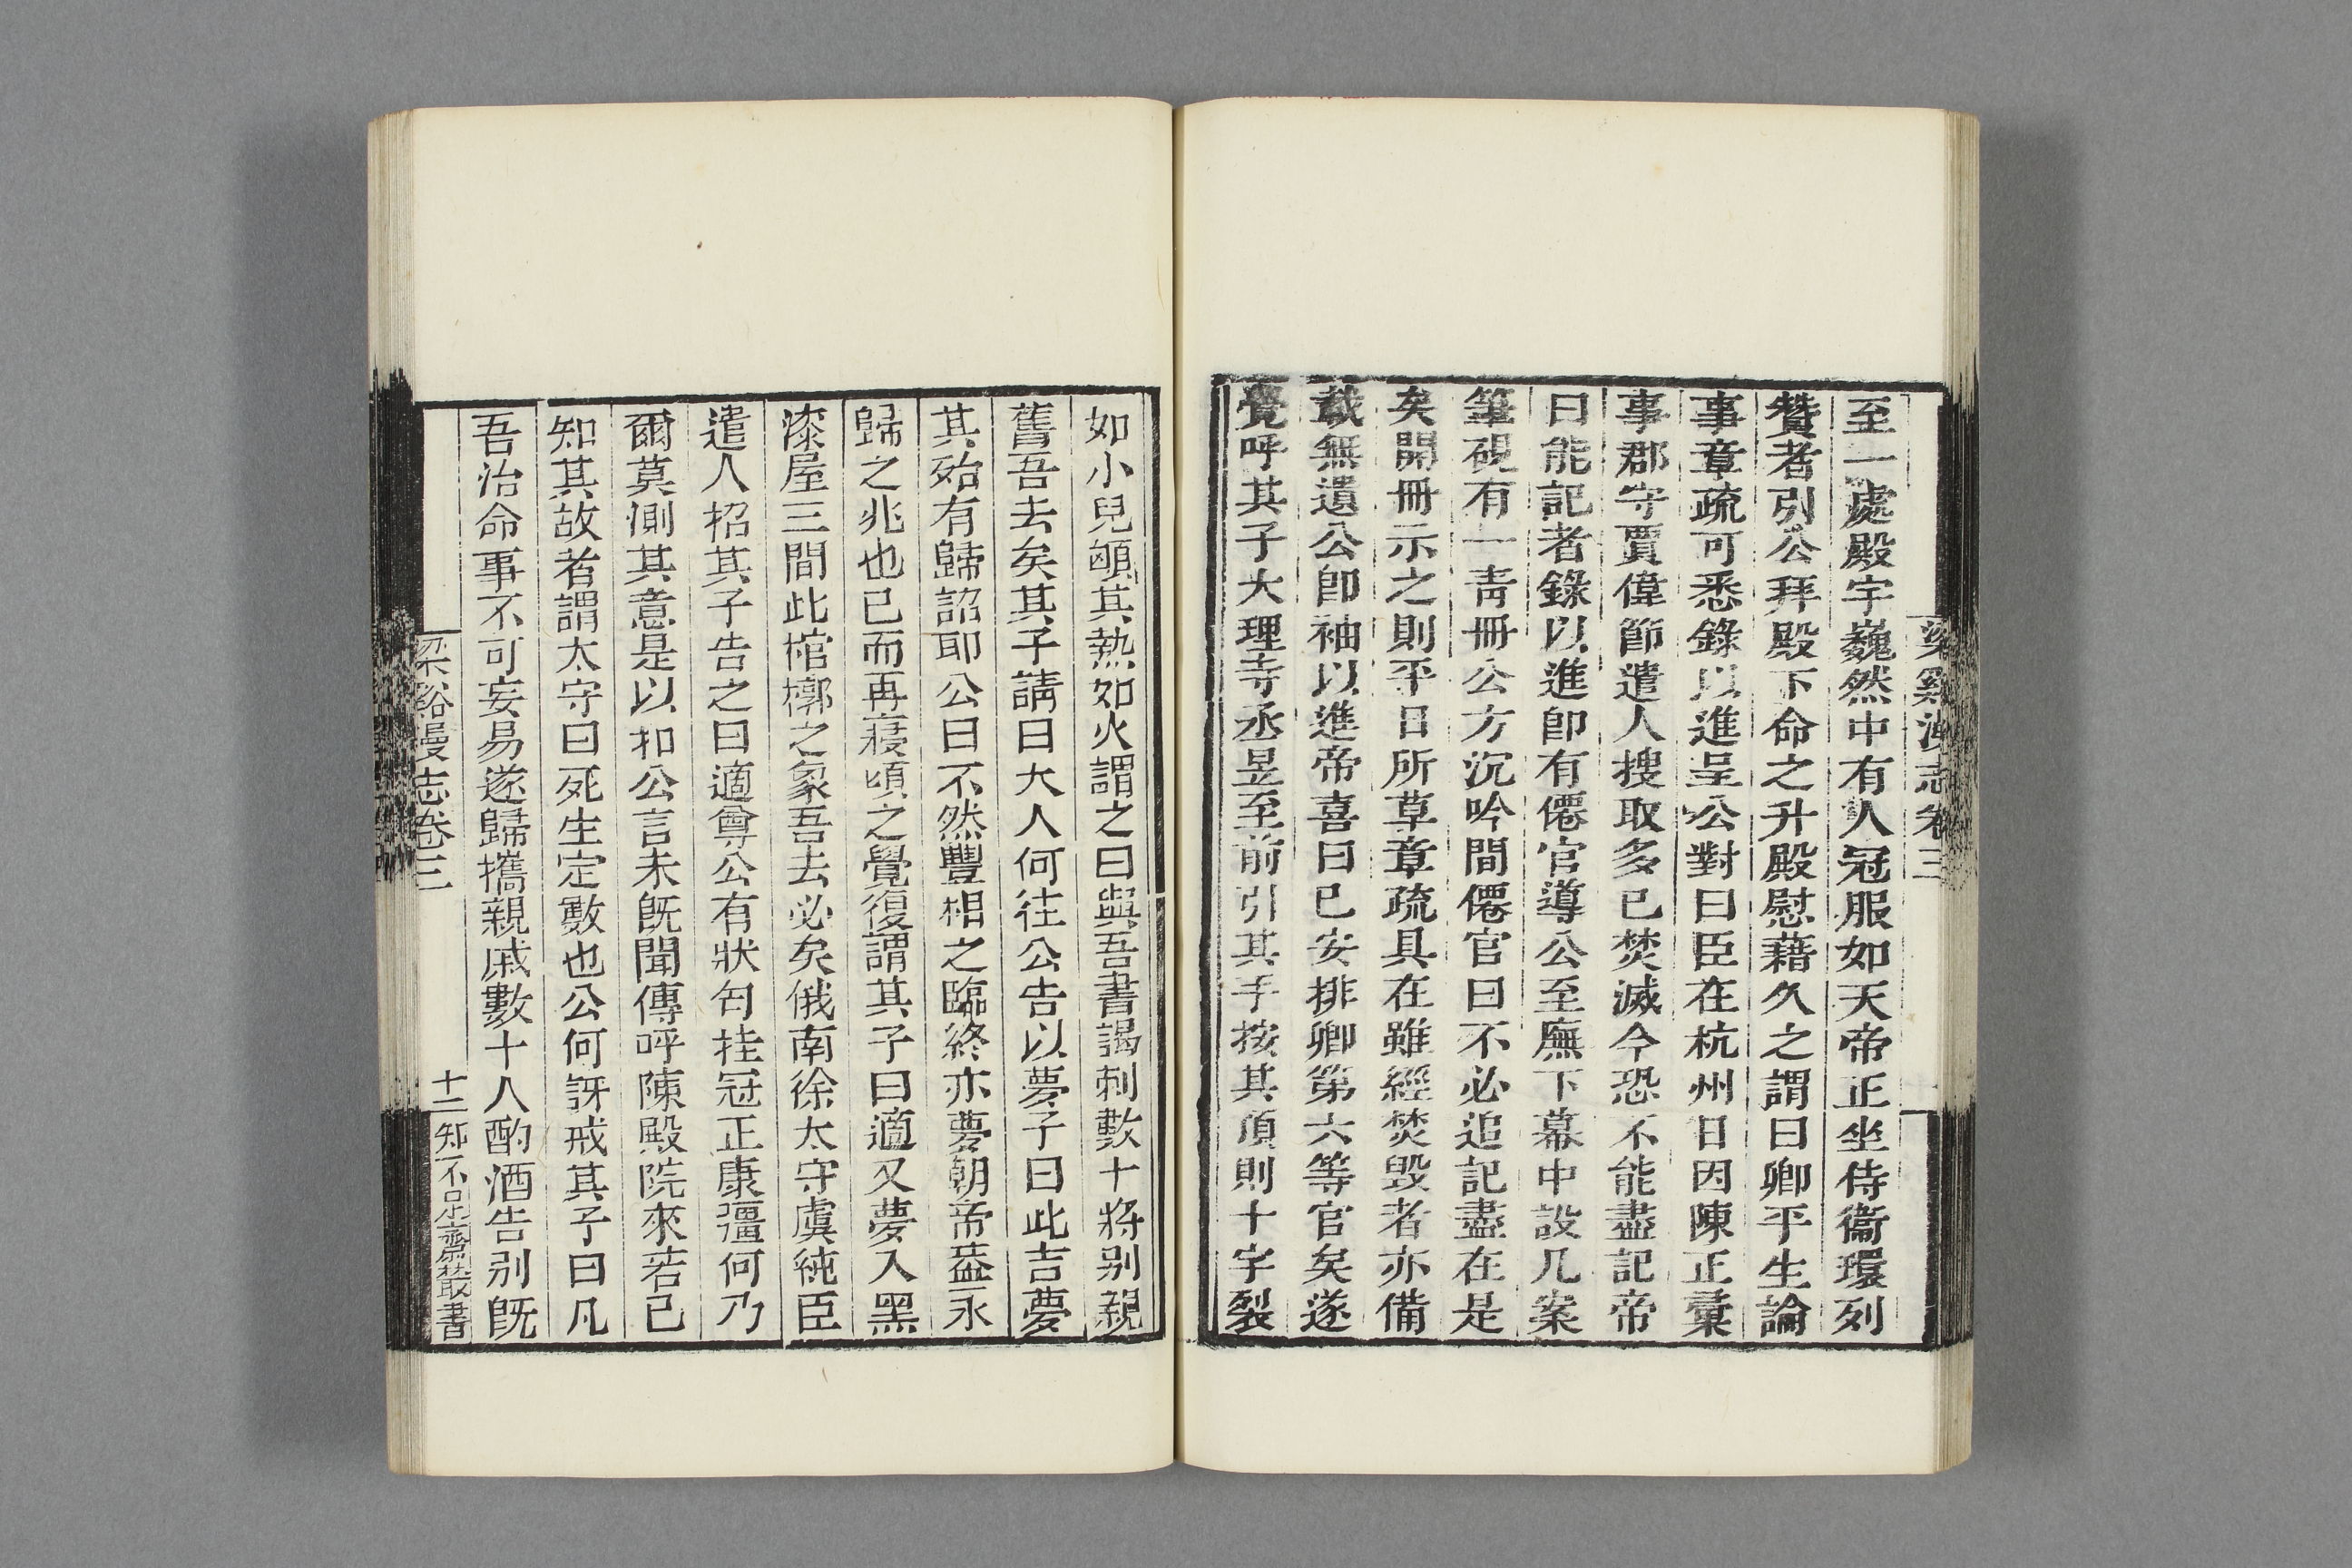 梁谿漫志卷三
至一處殿宇巍然中有人冠服如天帝正坐侍衞環列
贊者引公拜殿下命之升殿慰藉久之謂曰卿平生論
事章疏可悉錄以進呈公對曰臣在杭州日因陳正彙
事郡守賈偉節遣人搜取多已焚滅今恐不能盡記帝
曰能記者錄以進卽有僊官導公至廡下幕中設几案
筆硯有一青冊公方沉吟間僊官曰不必追記盡在是
矣開冊示之則平日所草章疏具在雖經焚毀者亦備
載無遺公卽袖以進帝喜曰已安排卿第六等官矣遂
覺呼其子大理寺丞昱至前引其手按其頂則十字裂
如小兒䪿其熱如火謂之曰與吾書謁刺數十將别親
舊吾去矣其子請曰大人何往公告以夢子曰此吉夢
其殆有歸詔耶公曰不然豐相之臨終亦夢朝帝葢永
歸之兆也已而再寢頃之覺復謂其子曰適又夢入黑
漆屋三間此棺槨之象吾去必矣俄南徐太守虞純臣
遣人招其子告之曰適尊公有狀匄挂冠正康彊何乃
爾莫測其意是以扣公言未旣聞傳呼陳殿院來若已
知其故者謂太守曰死生定數也公何訝戒其子曰凡
吾治命事不可妄易遂歸攜親戚數十人酌酒告别旣
梁谿漫志卷三
十二
知不足齋叢書